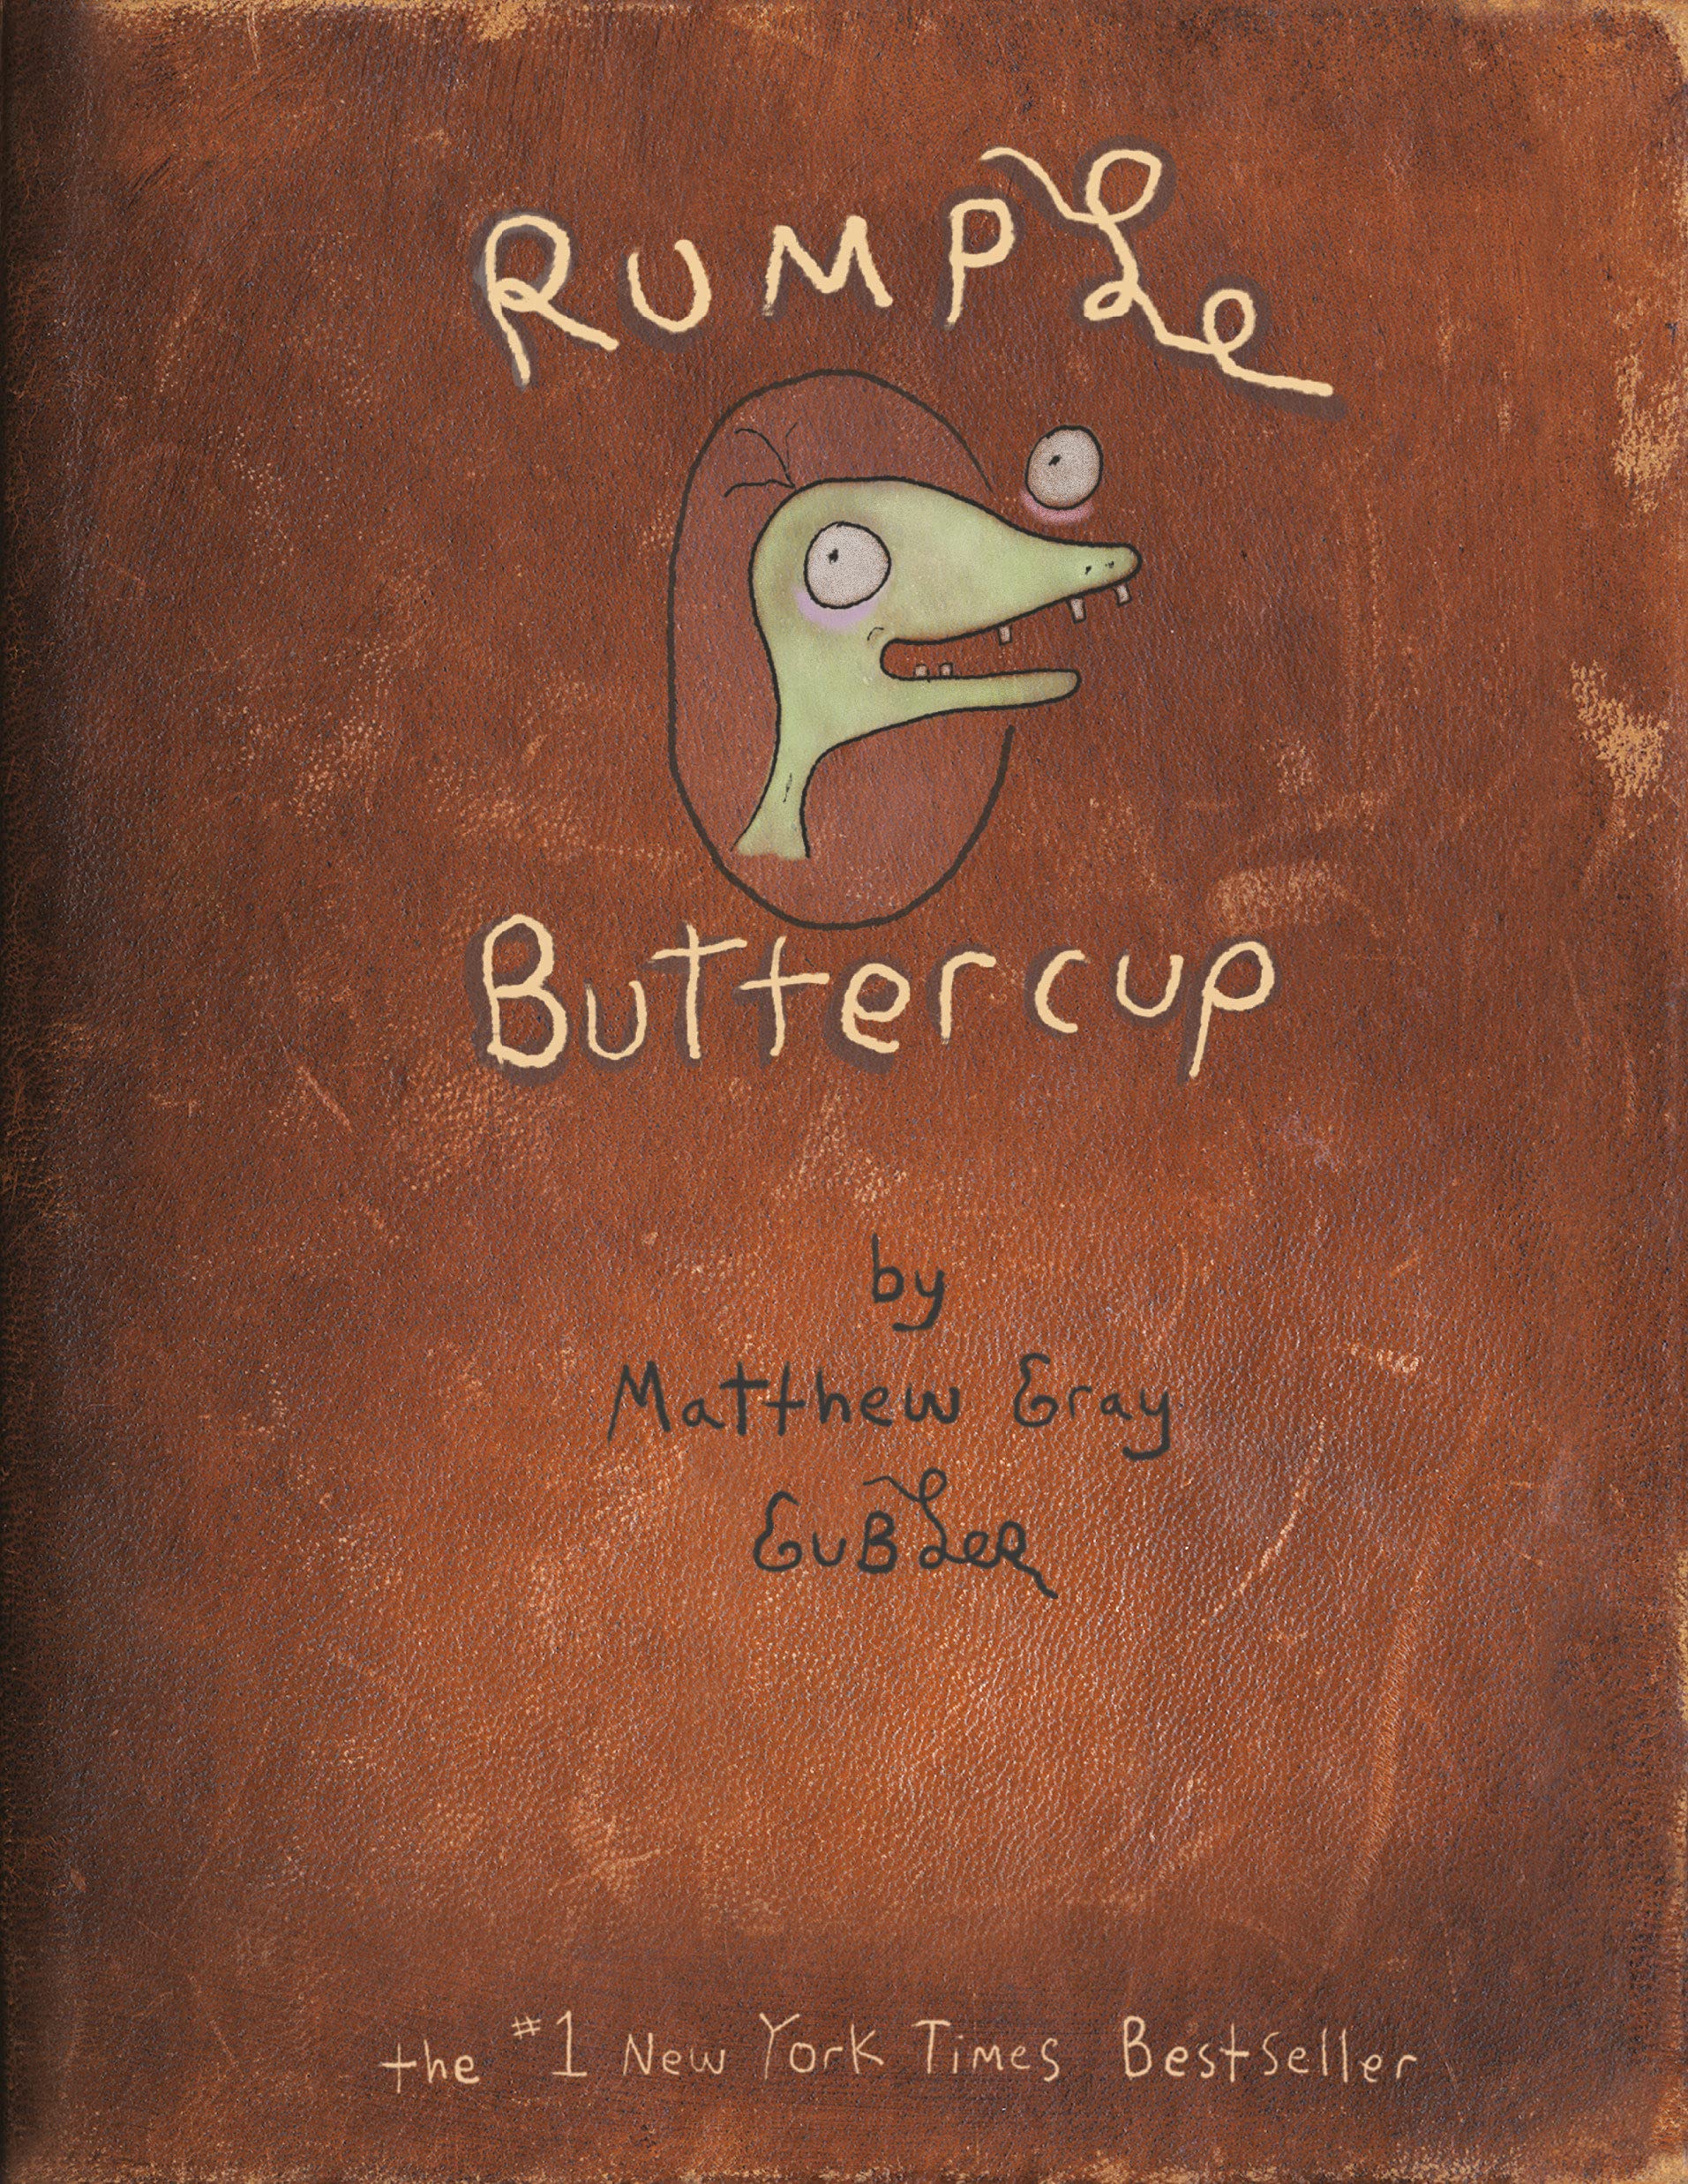 RUMPLe
Buttercup
by
Matthew Gray
GUBLeR
the #1 New York Times Bestseller